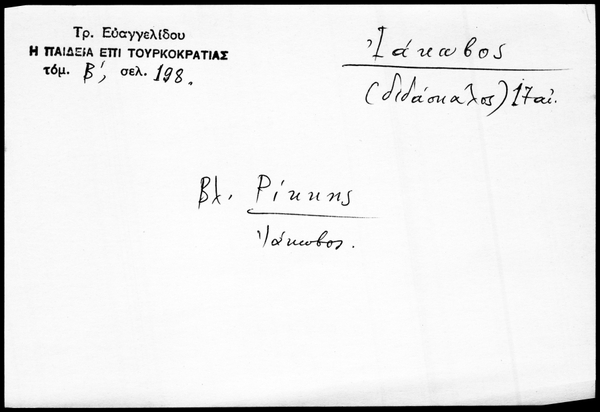 Τρ. Εὐαγγελίδου
Η ΠΑΙΔΕΙΑ ΕΠΙ ΤΟΥΡΚΟΚΡΑΤΙΑΣ
τόμ. Β', σελ. 198.
Ἰάκωβος
(διδάσκαλος) 17 αἰ.
βλ. Ρίκκης
Ἰάκωβος.